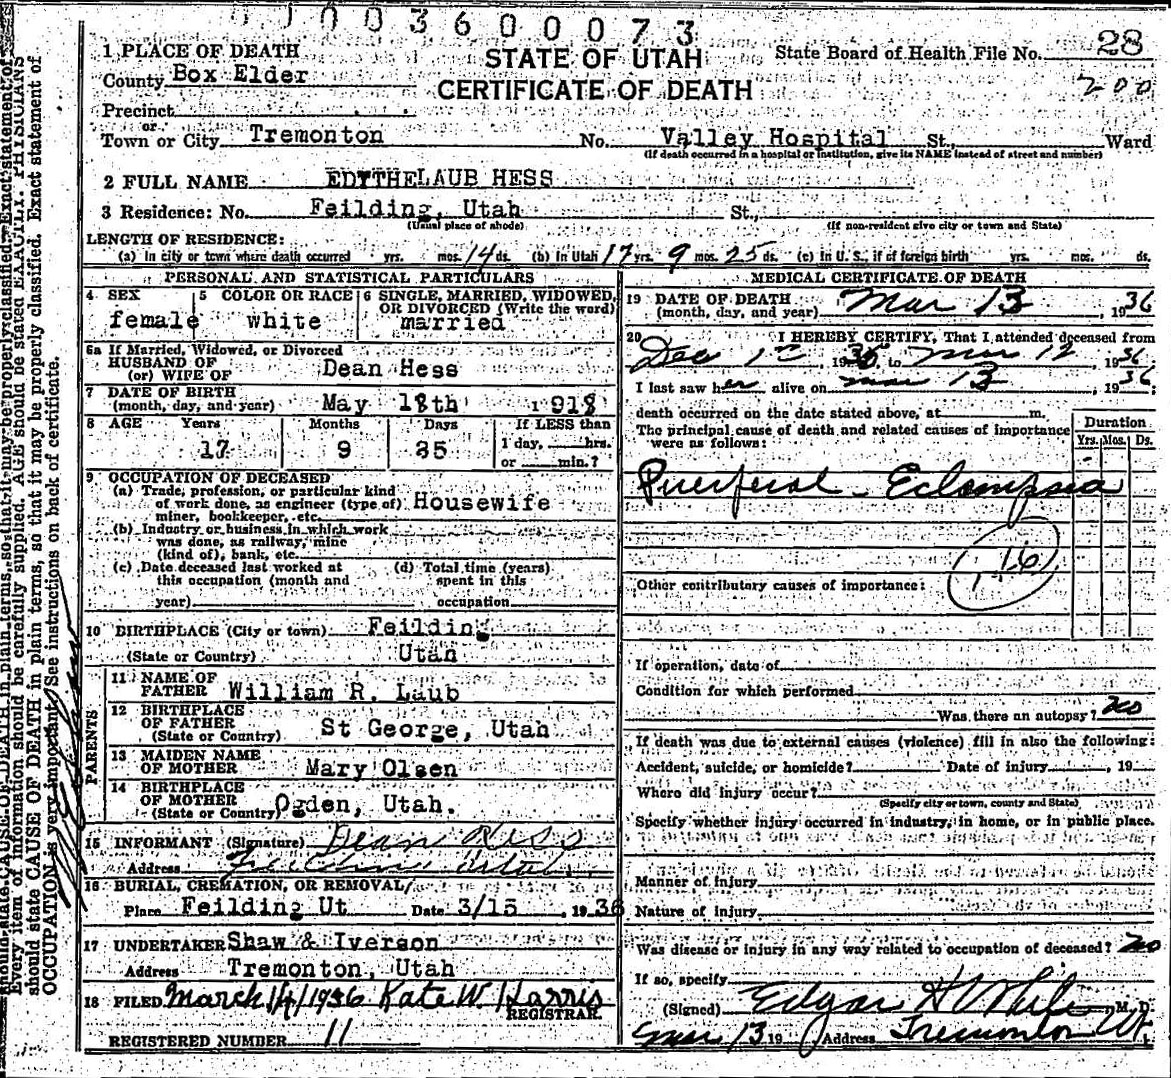 0 1 0 0 3 6 0 0 0 7 3
1 PLACE OF DEATH
STATE OF UTAH
CERTIFICATE OF DEATH
State Board of Health File No. 28
200
County Box Elder
Precinct
or
Town or City Tremonton No. Valley Hospital St., Ward
(If death occurred in a hospital or institution, give its NAME instead of street and number)
2 FULL NAME EDYTHELAUB HESS
3 Residence: No. Feilding, Utah St.,
(Usual place of abode) (If non-resident give city or town and State)
LENGTH OF RESIDENCE:
(a) In city or town where death occurred yrs. mos. 14 ds. (b) In Utah 17 yrs. 9 mos. 25 ds. (c) In U. S., if of foreign birth yrs. mos. ds.
PERSONAL AND STATISTICAL PARTICULARS
4 SEX
female
5 COLOR OR RACE
white
6 SINGLE, MARRIED, WIDOWED, OR DIVORCED (Write the word)
married
6a If Married, Widowed, or Divorced
HUSBAND OF
(or) WIFE OF Dean Hess
7 DATE OF BIRTH
(month, day, and year) May 18th 1918
8 AGE Years Months Days If LESS than
17 9 25 1 day, hrs.
or min.?
9 OCCUPATION OF DECEASED
(a) Trade, profession, or particular kind
of work done, as engineer (type of) Housewife
miner, bookkeeper, etc.
(b) Industry or business in which work
was done, as railway, mine
(kind of), bank, etc.
(c) Date deceased last worked at
this occupation (month and
year)
(d) Total time (years)
spent in this
occupation
10 BIRTHPLACE (City or town) Feilding
(State or Country) Utah
PARENTS
11 NAME OF
FATHER William R. Laub
12 BIRTHPLACE
OF FATHER
(State or Country) St George, Utah
13 MAIDEN NAME
OF MOTHER Mary Olsen
14 BIRTHPLACE
OF MOTHER
(State or Country) Ogden, Utah.
15 INFORMANT (Signature) Dean Hess
Address Utah
16 BURIAL, CREMATION, OR REMOVAL
Place Feilding Ut Date 3/15 1936
17 UNDERTAKER Shaw & Iverson
Address Tremonton, Utah
18 FILED March 14/1936 Kate W. Harris
REGISTRAR.
REGISTERED NUMBER 11
MEDICAL CERTIFICATE OF DEATH
19 DATE OF DEATH
(month, day, and year) Mar 13, 1936
20 I HEREBY CERTIFY, That I attended deceased from
Dec 1st, 1935, to Mar 12, 1936
I last saw her alive on Mar 13, 1936
death occurred on the date stated above, at m.
The principal cause of death and related causes of importance
were as follows:
Duration
Yrs. Mos. Ds.
Puerperal Eclampsia
146
Other contributory causes of importance:
If operation, date of
Condition for which performed
Was there an autopsy? no
If death was due to external causes (violence) fill in also the following:
Accident, suicide, or homicide? Date of injury , 19
Where did injury occur?
(Specify city or town, county and State)
Specify whether injury occurred in industry, in home, or in public place.
Manner of injury
Nature of injury
Was disease or injury in any way related to occupation of deceased? no
If so, specify
(Signed) Edgar H White, M. D.
Mar 13 19 Address Tremonton Ut.
Every item of information should be carefully supplied. AGE should be stated EXACTLY. PHYSICIANS
should state CAUSE OF DEATH in plain terms, so that it may be properly classified. Exact statement of
OCCUPATION is very important. See instructions on back of certificate.